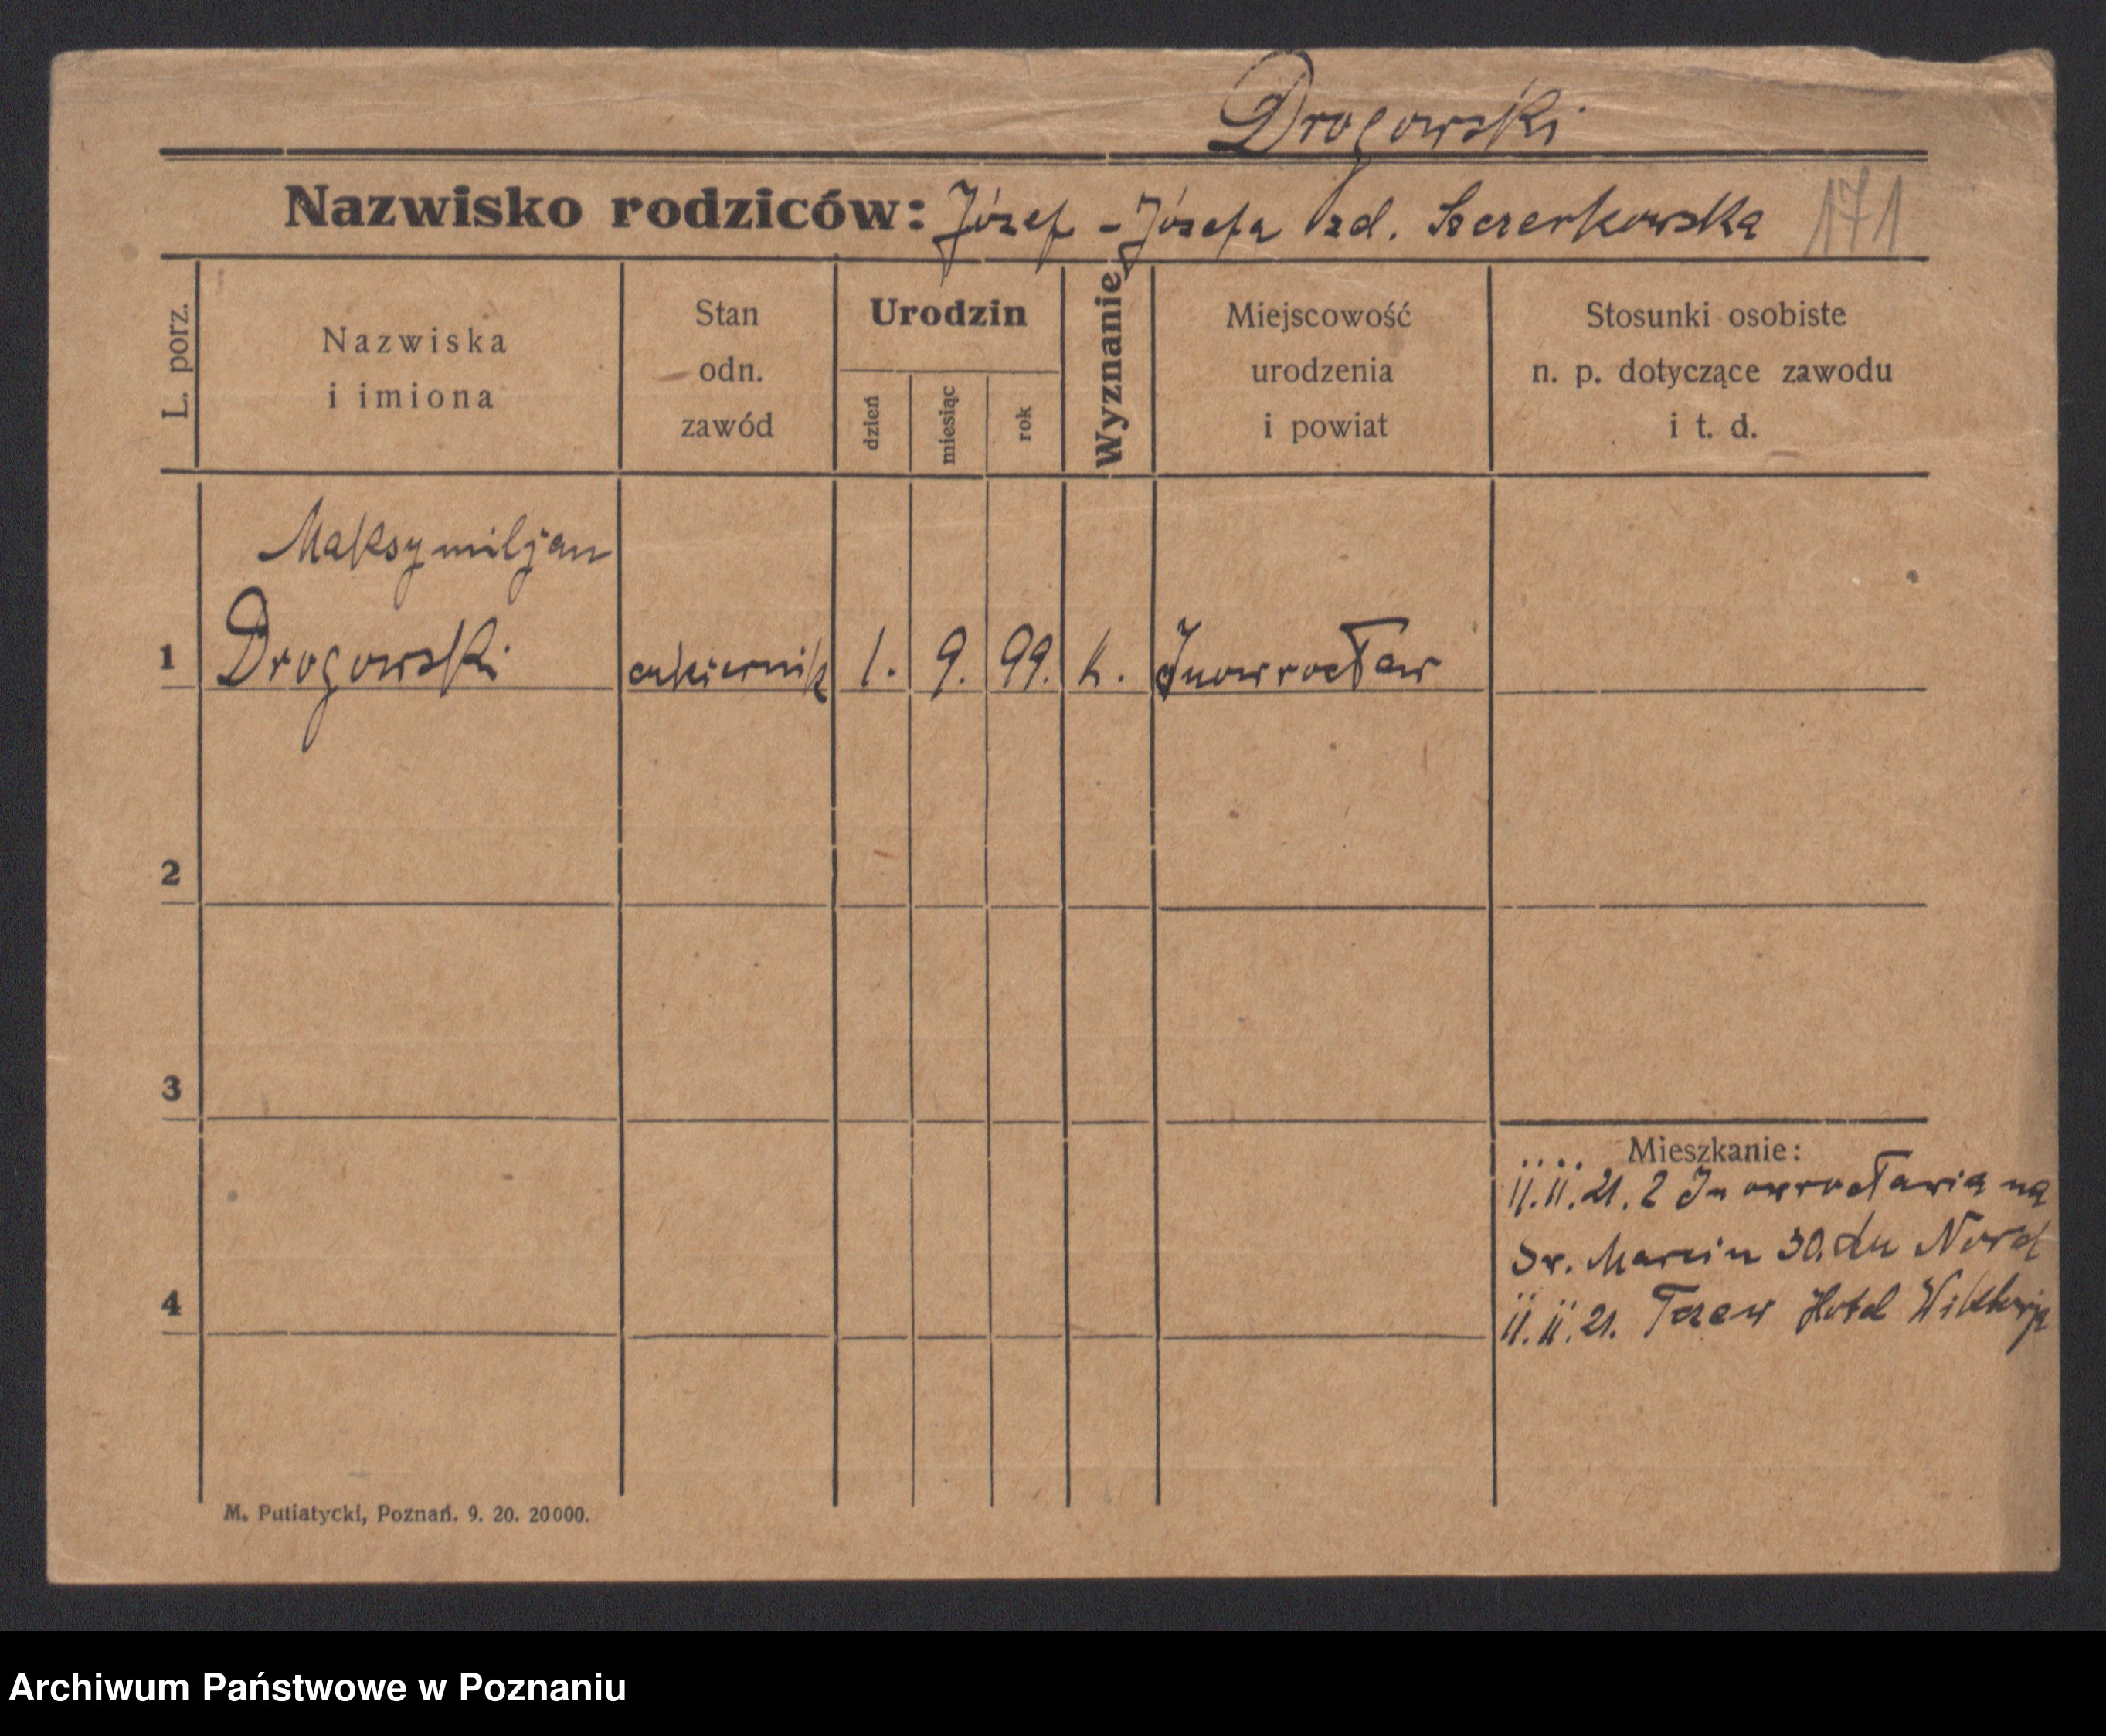 Drogowski
Nazwisko rodziców: Józef - Józefa zd. Szczerkowska 171
L. porz.
Nazwiska
i imiona
Stan
odn.
zawód
Urodzin
dzień
miesiąc
rok
Wyznanie
Miejscowość
urodzenia
i powiat
Stosunki osobiste
n. p. dotyczące zawodu
i t. d.
Maksymiljan
1 Drogowski cukiernik 1. 9. 99. k. Inowrocław
2
3
4
Mieszkanie:
11.11.21. z Inowrocławia na
Św. Marcin 30. du Nord
11.11.21. Tczew Hotel Wiktorja
M. Putiatycki, Poznań. 9. 20. 20000.
Archiwum Państwowe w Poznaniu